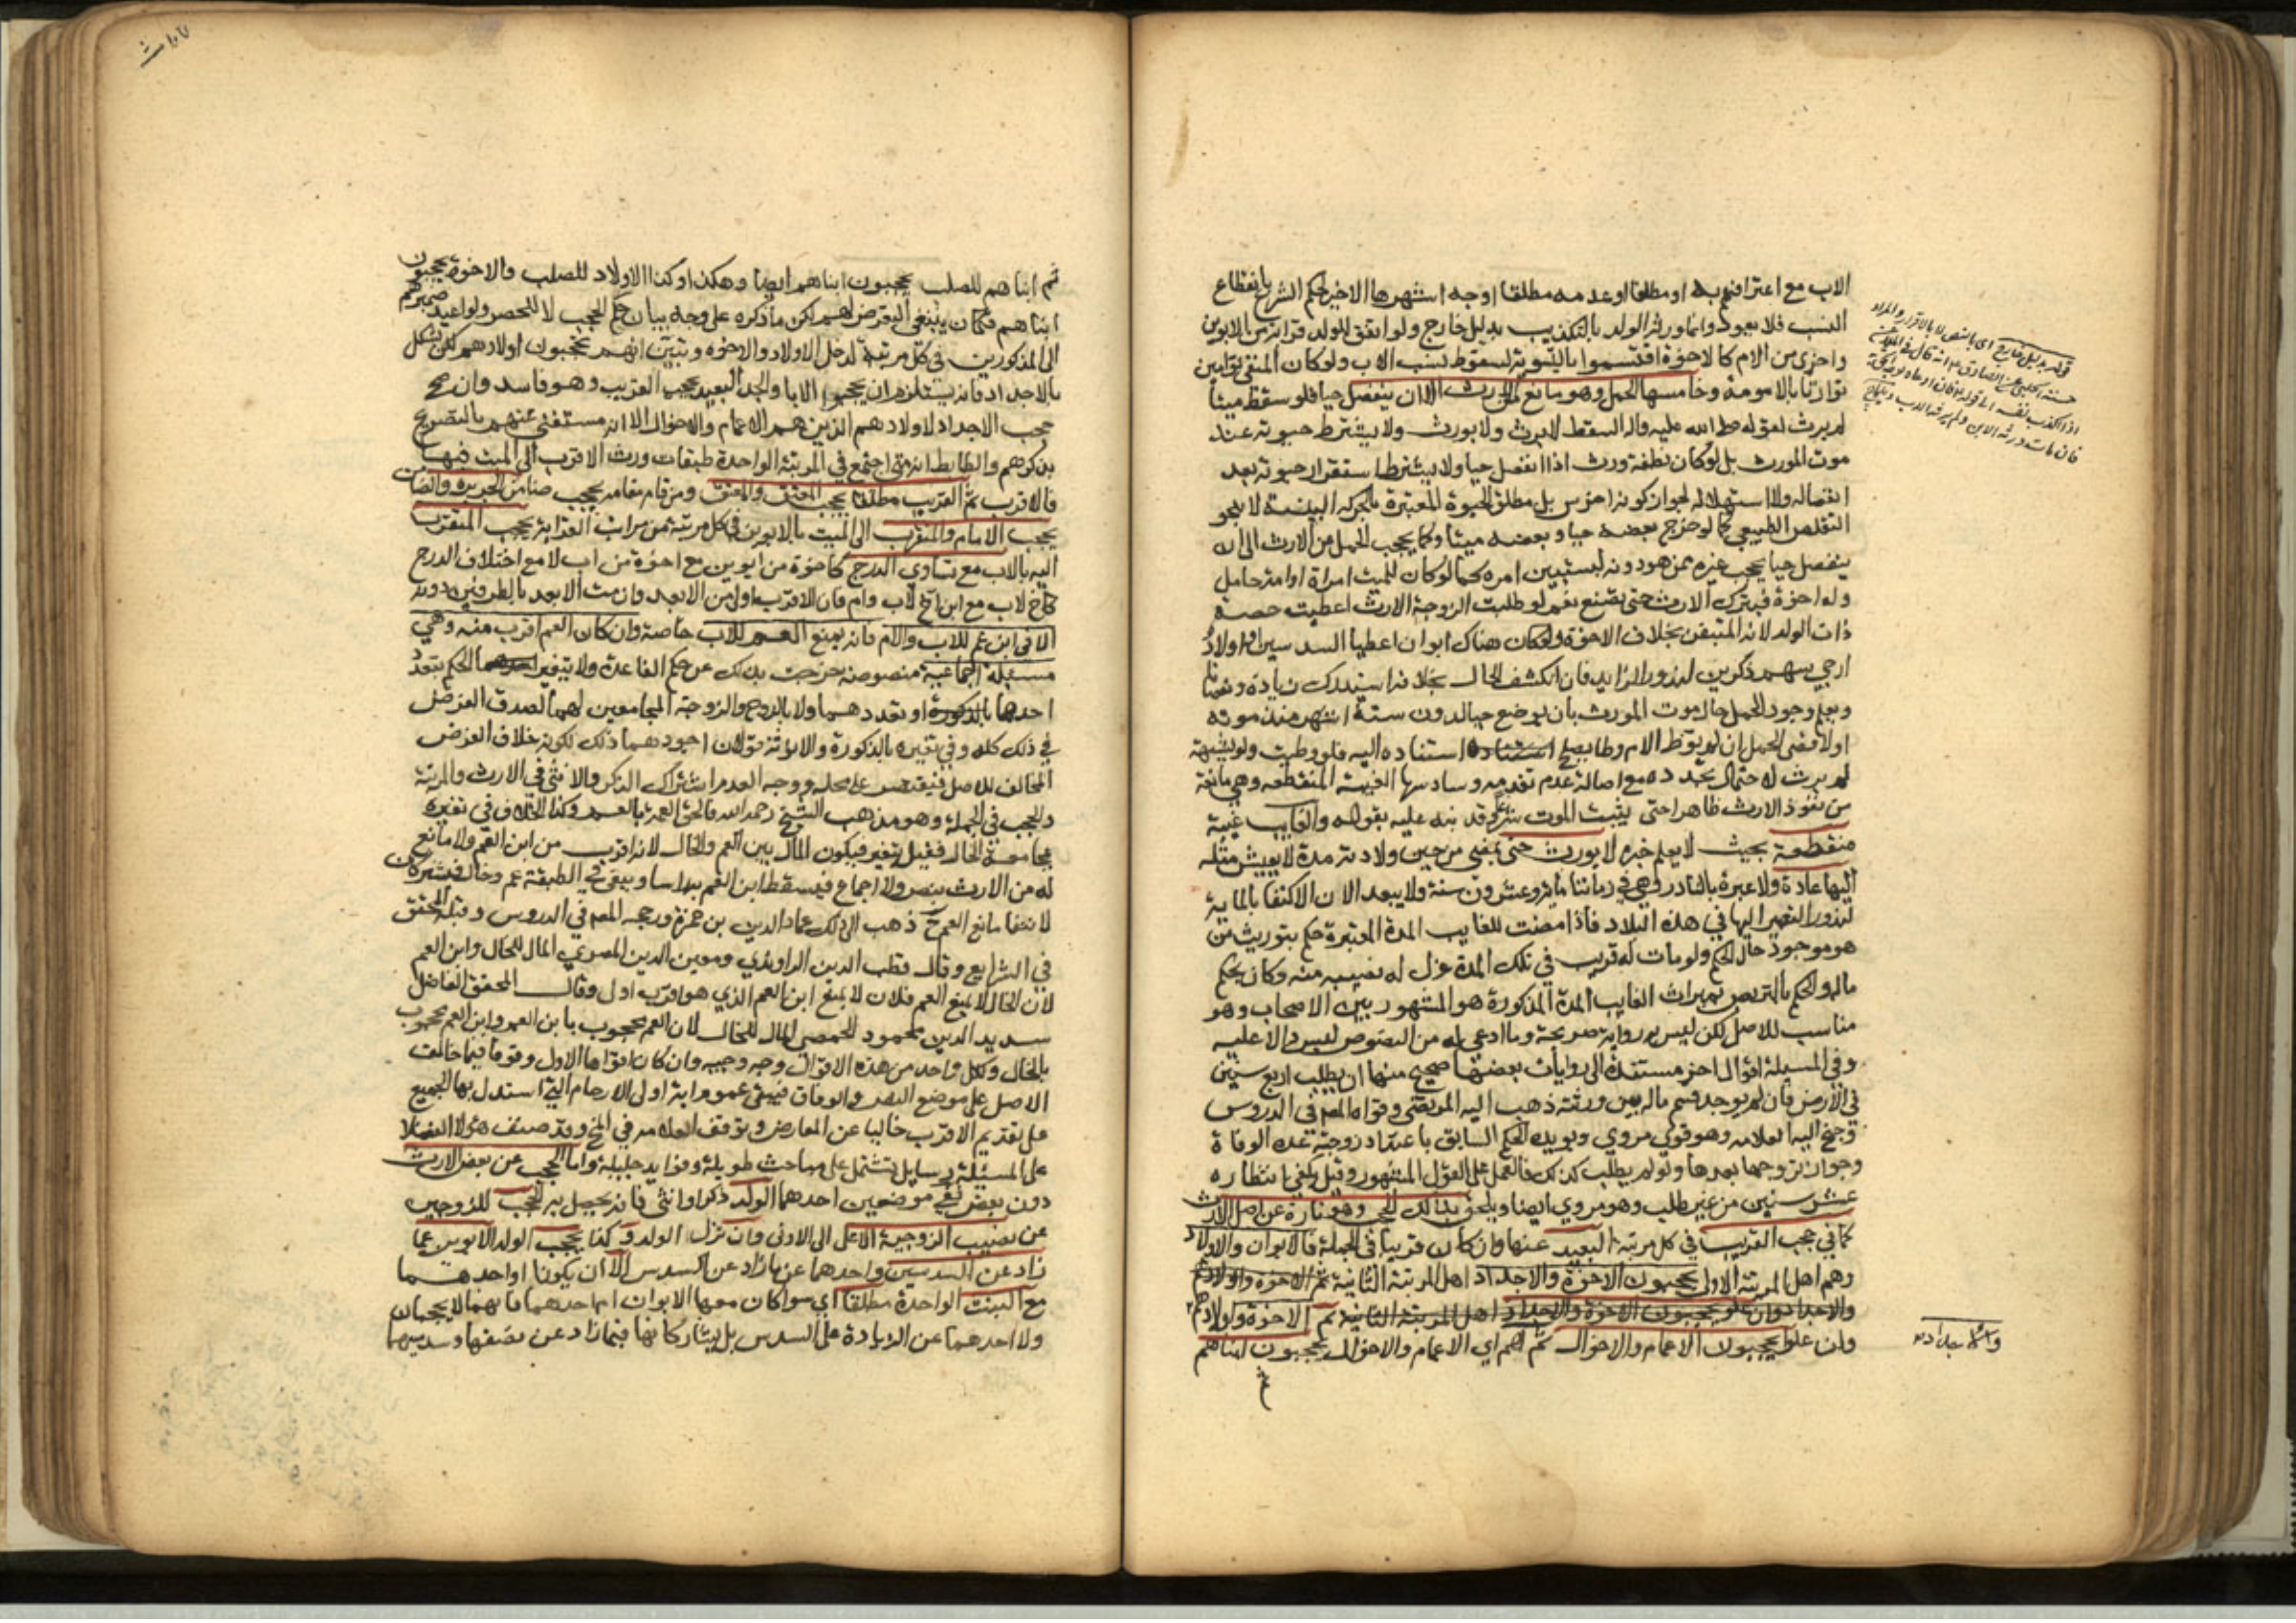 الاب مع اعترافهم به او مطلقا او عدمه مطلقا اوجه اشهرها الاخير لحكم الشرع بانقطاع
النسب فلا يعود وانما ورثه الولد بالتكذيب بدليل خارج ولو اتفق للولد قرابة من الابوين
واخرى من الام كالاخوة اقتسموا بالسوية لسقوط نسب الاب ولو كان المنفي توامين
توارثا بالامومة وخامسها الحمل وهو مانع من الارث الا ان ينفصل حيا فلو سقط ميتا
لم يرث لقوله صلى الله عليه واله السقط لا يرث ولا يورث ولا يشترط حيوته عند
موت المورث بل لو كان نطفة ورث اذا انفصل حيا ولا يشترط استقرار حيوته بعد
انفصاله ولا استهلاله لجواز كونه اخرس بل مطلق الحيوة المعتبرة بالحركة البينة لا بنحو
التقلص الطبيعي كما لو خرج بعضه حيا وبعضه ميتا وكما يحجب الحمل من الارث الى ان
ينفصل حيا يحجب غيره ممن هو دونه ليستبين امره كما لو كان للميت امراة او امة حامل
وله اخوة فيترك الارث حتى تضع نعم لو طلبت الزوجة الارث اعطيت حصة
ذات الولد لانه المتيقن بخلاف الاخوة ولو كان هناك ابوان اعطيا السدسين او اولاد
ارجي سهم ذكرين لندور الزايد فان انكشف الحال بخلافه استدرك زيادة ونقصانا
ويعلم وجود الحمل حال موت المورث بان يوضع حيا لدون ستة اشهر منذ موته
او لاقصى الحمل ان لم توطا الام وطا يصلح استناده اليه فلو وطيت ولو بشبهة
لم يرث لاحتمال تجدده مع اصالة عدم تقدمه وسادسها الغيبة المنقطعة وهي مانعة
من نفوذ الارث ظاهرا حتى يثبت الموت شرعا وقد نبه عليه بقوله والغايب غيبة
منقطعة بحيث لا يعلم خبره لا يورث حتى تمضي من حين ولادته مدة لا يعيش مثله
اليها عادة ولا عبرة بالنادر وهي في زماننا مائة وعشرون سنة ولا يبعد الان الاكتفا بالماية
لندور التعمير اليها في هذه البلاد فاذا مضت للغايب المدة المعتبرة حكم بتوريث من
هو موجود حال الحكم ولو مات له قريب في تلك المدة عزل له نصيبه منه وكان بحكم
ماله والحكم بالتربص بميراث الغايب المدة المذكورة هو المشهور بين الاصحاب وهو
مناسب للاصل لكن ليس به رواية صريحة وما ادعي له من النصوص ليس دالا عليه
وفي المسيلة اقوال اخر مستندة الى روايات بعضها صحيح منها ان يطلب اربع سنين
في الارض فان لم يوجد قسم ماله بين ورثته ذهب اليه المرتضى وقواه المص في الدروس
وجنح اليه العلامة وهو قوي مروي ويؤيده الحكم السابق باعتداد زوجته عدة الوفاة
وجواز تزوجها بعدها ولو لم يطلب كذلك فالعمل على القول المشهور وقيل يكفي انتظاره
عشر سنين من غير طلب وهو مروي ايضا ويلحق بذلك الحجب وهو تارة عن اصل الارث
كما في حجب القريب في كل مرتبة البعيد عنها وان كان قريبا في الجملة فالابوان والاولاد
وهم اهل المرتبة الاولى يحجبون الاخوة والاجداد اهل المرتبة الثانية ثم الاخوة واولادهم
والاجداد وان علو يحجبون الاخوة والاجداد اهل المرتبة الثانية ثم الاخوة واولادهم
وان علوا يحجبون الاعمام والاخوال ثم هم اي الاعمام والاخوال يحجبون ابناهم
ثم
والاجداد
قوله بدليل خارج اي بالنص لا بالاقرار والمراد
ثم ابناهم للصلب يحجبون ابناهم ايضا وهكذا وكذا الاولاد للصلب والاخوة يحجبون
ابناهم فكان ينبغي التعرض لهم لكن ما ذكره على وجه بيان حكم الحجب لا للحصر ولو اعيد ضميرهم
الى المذكورين في كل مرتبة لدخل الاولاد والاخوة وتبين انهم يحجبون اولادهم لكن يشكل
بالاجداد فانه يستلزم ان يحجبوا الابا والجد البعيد يحجب القريب وهو فاسد وان صح
حجب الاجداد لاولادهم الذين هم الاعمام والاخوال الا انه مستغنى عنهم بالتصريح
بذكرهم والضابط انه متى اجتمع في المرتبة الواحدة طبقات ورث الاقرب الى الميت فيها
فالاقرب ثم القريب مطلقا يحجب المعتق والمعتق ومن قام مقامه يحجب ضامن الجريرة والضامن
يحجب الامام والمتقرب الى الميت بالابوين في كل مرتبة من مراتب القرابة يحجب المتقرب
اليه بالاب مع تساوي الدرج كاخوة من ابوين مع اخوة من اب لا مع اختلاف الدرج
كاخ لاب مع ابن اخ لاب وام فان الاقرب اولى من الابعد وان مت الابعد بالطرفين دونه
الا في ابن عم للاب والام فانه يمنع العم للاب خاصة وان كان العم اقرب منه وهي
مسيلة اجماعية منصوصة خرجت بذلك عن حكم القاعدة ولا يتغير الحكم بتعدد
احدهما او تعددهما ولا بالزوج والزوجة المجامعين لهما لصدق الفرض
في ذلك كله وفي تغيره بالذكورة والانوثة قولان اجودهما ذلك لكونه خلاف الفرض
المخالف للاصل فيقتصر على محله ووجه العدم اشتراك الذكر والانثى في الارث والمرتبة
والحجب في الجملة وهو مذهب الشيخ رحمه الله فالحق العمة بالعم وكذا الخلاف في تغيره
بمجامعة الخال فقيل يتغير فيكون المال بين العم والخال لانه اقرب من ابن العم ولا مانع
له من الارث بنص ولا اجماع فيسقط ابن العم به راسا ويبقى في الطبقة عم وخال فيشتركان
لانتفا مانع العم ح ذهب الى ذلك عماد الدين بن حمزة ورجحه المص في الدروس وقبله المحقق
في الشرايع وقال قطب الدين الراوندي ومعين الدين المصري المال للخال وابن العم
لان الخال لا يمنع العم فلان لا يمنع ابن العم الذي هو اقرب اولى وقال المحقق الفاضل
سديد الدين محمود الحمصي المال للخال لان العم محجوب بابن العم وابن العم محجوب
بالخال ولكل واحد من هذه الاقوال وجه وجيه وان كان اقواها الاول وقوفا فيما خالف
الاصل على موضع النص والوفاق فيبقى عموم اية اولى الارحام التي استدل بها الجميع
على تقديم الاقرب خاليا عن المعارض وتوقف العلامة في المخ وقد صنف هؤلا الفضلا
على المسئلة رسايل تشتمل على مباحث طويلة وفوايد جليلة واما الحجب عن بعض الارث
دون بعض ففي موضعين احدهما الولد ذكرا او انثى فانه يحصل به الحجب للزوجين
عن نصيب الزوجية الاعلى الى الادنى وان نزل الولد وكذا يحجب الولد الابوين عما
زاد عن السدسين واحدهما عن ما زاد عن السدس الا ان يكونا او احدهما
مع البنت الواحدة مطلقا اي سوا كان معها الابوان ام احدهما فانهما لا يحجبان
ولا احدهما عن الزيادة على السدس بل يشاركانها فيما زاد عن نصفها وسدسيهما